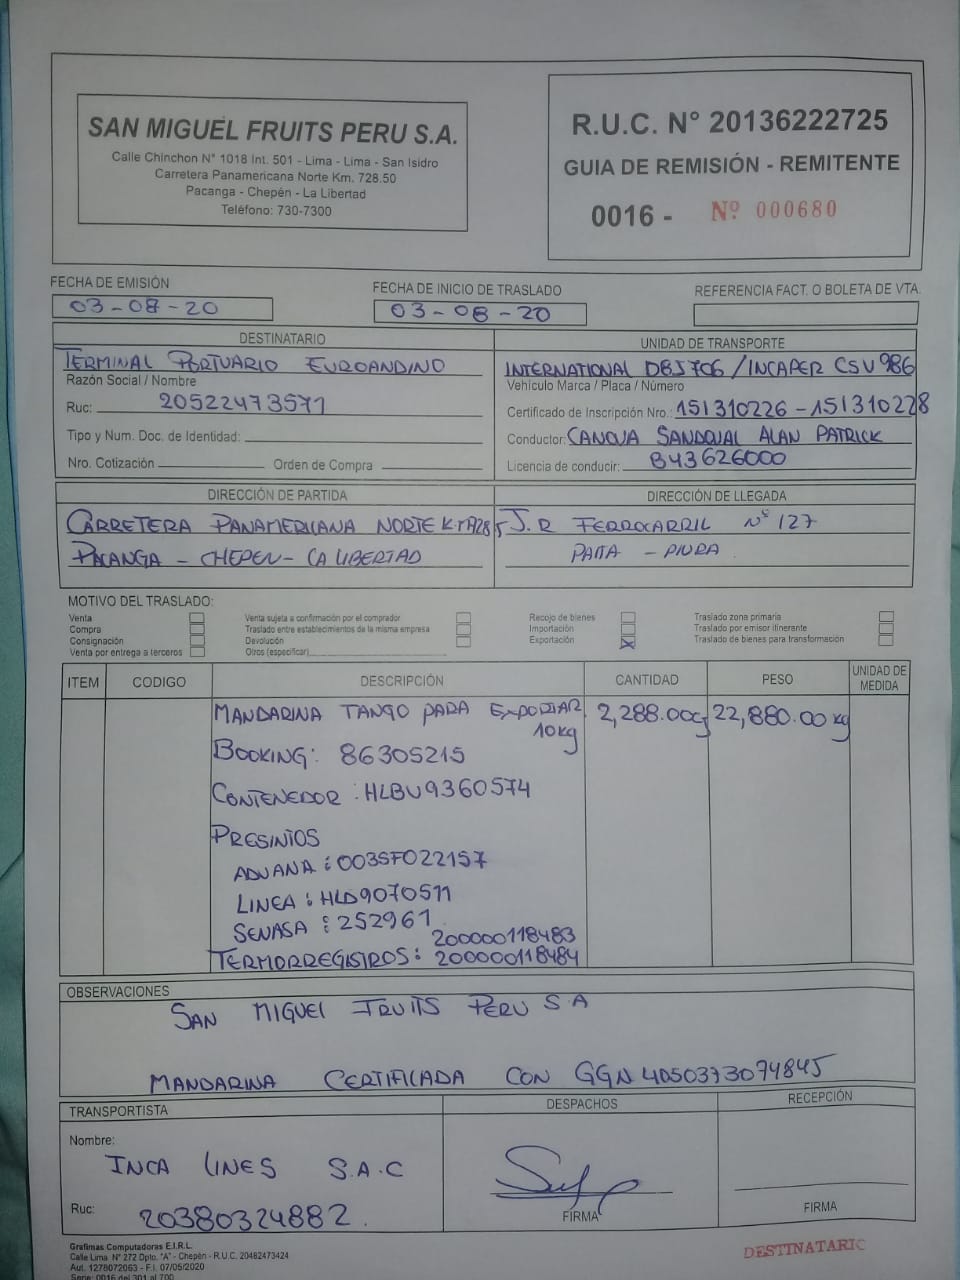 SAN MIGUEL FRUITS PERU S.A.
Calle Chinchon N° 1018 Int. 501 - Lima - Lima - San Isidro
Carretera Panamericana Norte Km. 728.50
Pacanga - Chepén - La Libertad
Teléfono: 730-7300
R.U.C. N° 20136222725
GUIA DE REMISIÓN - REMITENTE
0016 - Nº 000680
FECHA DE EMISIÓN
03-08-20
FECHA DE INICIO DE TRASLADO
03-08-20
REFERENCIA FACT. O BOLETA DE VTA.
DESTINATARIO
TERMINAL PORTUARIO EUROANDINO
Razón Social / Nombre
Ruc: 20522473571
Tipo y Num. Doc. de Identidad:
Nro. Cotización Orden de Compra
UNIDAD DE TRANSPORTE
INTERNATIONAL D8J706 / INCAPER CSV986
Vehículo Marca / Placa / Número
Certificado de Inscripción Nro.: 151310226 - 151310228
Conductor: CANOVA SANDOVAL ALAN PATRICK
Licencia de conducir: B43626000
DIRECCIÓN DE PARTIDA
CARRETERA PANAMERICANA NORTE
PACANGA - CHEPEN - LA LIBERTAD
DIRECCIÓN DE LLEGADA
J.R FERROCARRIL Nº 127
PAITA - PIURA
MOTIVO DEL TRASLADO:
Venta
Compra
Consignación
Venta por entrega a terceros
Venta sujeta a confirmación por el comprador
Traslado entre establecimientos de la misma empresa
Devolución
Otros (especificar)
Recojo de bienes
Importación
Exportación X
Traslado zona primaria
Traslado por emisor itinerante
Traslado de bienes para transformación
ITEM CODIGO DESCRIPCIÓN CANTIDAD PESO UNIDAD DE MEDIDA
MANDARINA TANGO PARA EXPORTAR 2,288.00 22,880.00 kg
10kg
BOOKING: 86305215
CONTENEDOR: HLBU9360574
PRESINTOS
ADUANA: 003SF022157
LINEA: HLD9070511
SENASA: 252961
200000118483
TERMORREGISTROS: 200000118484
OBSERVACIONES
SAN MIGUEL FRUITS PERU S.A
MANDARINA CERTIFICADA CON GGN 4050373074845
TRANSPORTISTA
Nombre:
INCA LINES S.A.C
Ruc: 20380324882.
DESPACHOS
FIRMA
RECEPCIÓN
FIRMA
Grafimas Computadoras E.I.R.L.
Calle Lima N° 272 Dpto. "A" - Chepén - R.U.C. 20482473424
Aut. 1278072063 - F.I. 07/05/2020
Serie: 0016 del 301 al 700
DESTINATARIO